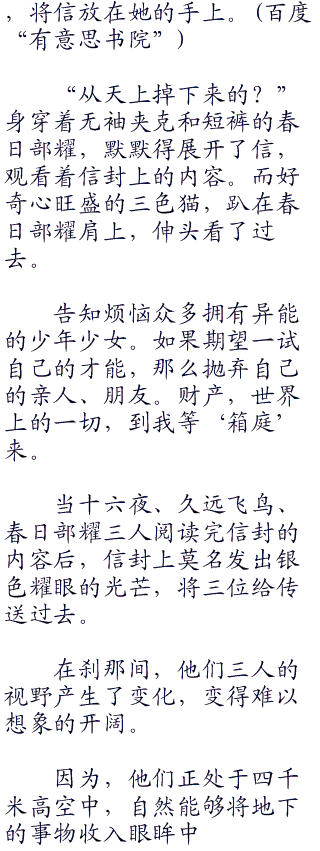 ，将信放在她的手上。(百度
“有意思书院”)
“从天上掉下来的？”
身穿着无袖夹克和短裤的春
日部耀，默默得展开了信，
观看着信封上的内容。而好
奇心旺盛的三色猫，趴在春
日部耀肩上，伸头看了过
去。
告知烦恼众多拥有异能
的少年少女。如果期望一试
自己的才能，那么抛弃自己
的亲人、朋友。财产，世界
上的一切，到我等‘箱庭’
来。
当十六夜、久远飞鸟、
春日部耀三人阅读完信封的
内容后，信封上莫名发出银
色耀眼的光芒，将三位给传
送过去。
在刹那间，他们三人的
视野产生了变化，变得难以
想象的开阔。
因为，他们正处于四千
米高空中，自然能够将地下
的事物收入眼眸中